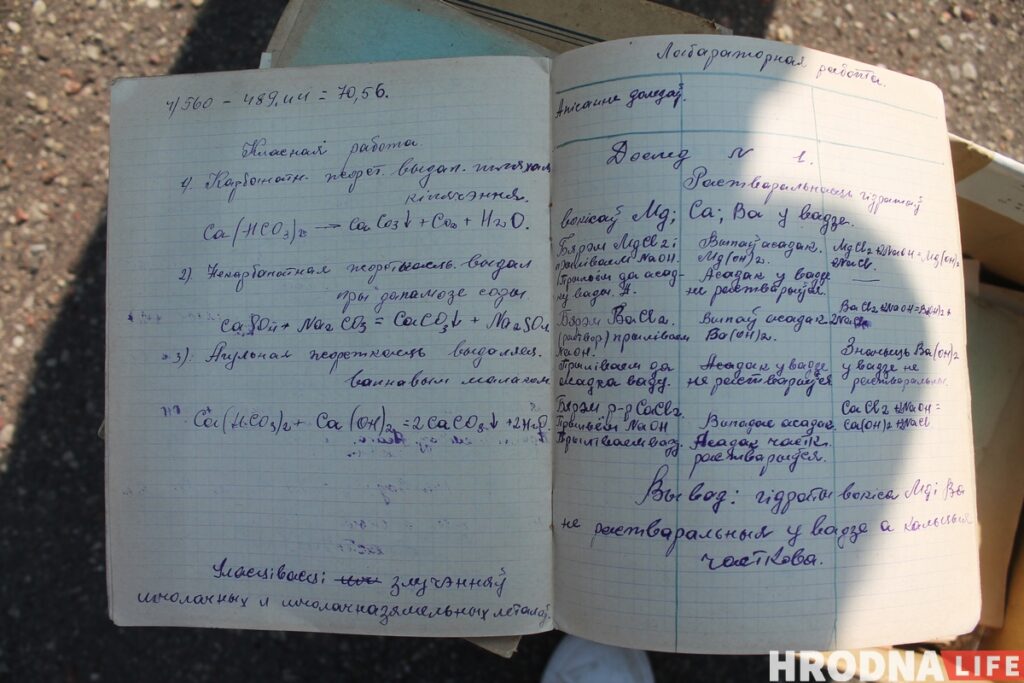 4) 560 - 489.44 = 70,56.
Класная работа.
1) Карбанатн. жорст. выдал. шляхам
кіпячэння.
Ca(HCO₃)₂ → CaCO₃↓ + CO₂ + H₂O.
2) Некарбанатная жорсткасць выдал
пры дапамозе соды.
CaSO₄ + Na₂CO₃ = CaCO₃↓ + Na₂SO₄
3) Агульная жорсткасць выдаляец.
вапнавым малаком
Ca(HCO₃)₂ + Ca(OH)₂ = 2CaCO₃↓ + 2H₂O.
Уласцівасці злучэнняў
шчолачных и шчолачназямельных металаў.
Лабараторная работа.
Апісанне доледаў.
Дослед N 1.
Растваральнасць гідратаў
вокісаў Mg; Ca; Ba у вадзе.
Бярэм MgCl₂ і
прыліваем NaOH.
Прыльём да асад-
ку вады.
Выпаў асадак.
Mg(OH)₂.
Асадак у вадзе
не растварыўся.
MgCl₂ + 2NaOH = Mg(OH)₂
2NaCl.
Бярэм BaCl₂.
(раствор) прыліваем
NaOH.
Прыліваем да
асадка ваду.
Выпаў асадак
Ba(OH)₂.
Асадак у вадзе
не растварыўся
BaCl₂ + 2NaOH = Ba(OH)₂ +
2NaCl
Значыць Ba(OH)₂
у вадзе не
растваральны.
Бярэм р-р CaCl₂.
Прыльём NaOH
Прыліваем ваду.
Выпадае асадак.
Асадак частк.
растварыўся.
CaCl₂ + 2NaOH =
Ca(OH)₂ + 2NaCl
Вывад: гідраты вокіса Mg і Ba
не растваральныя у вадзе а кальцыя
часткова.
HRODNA LIFE